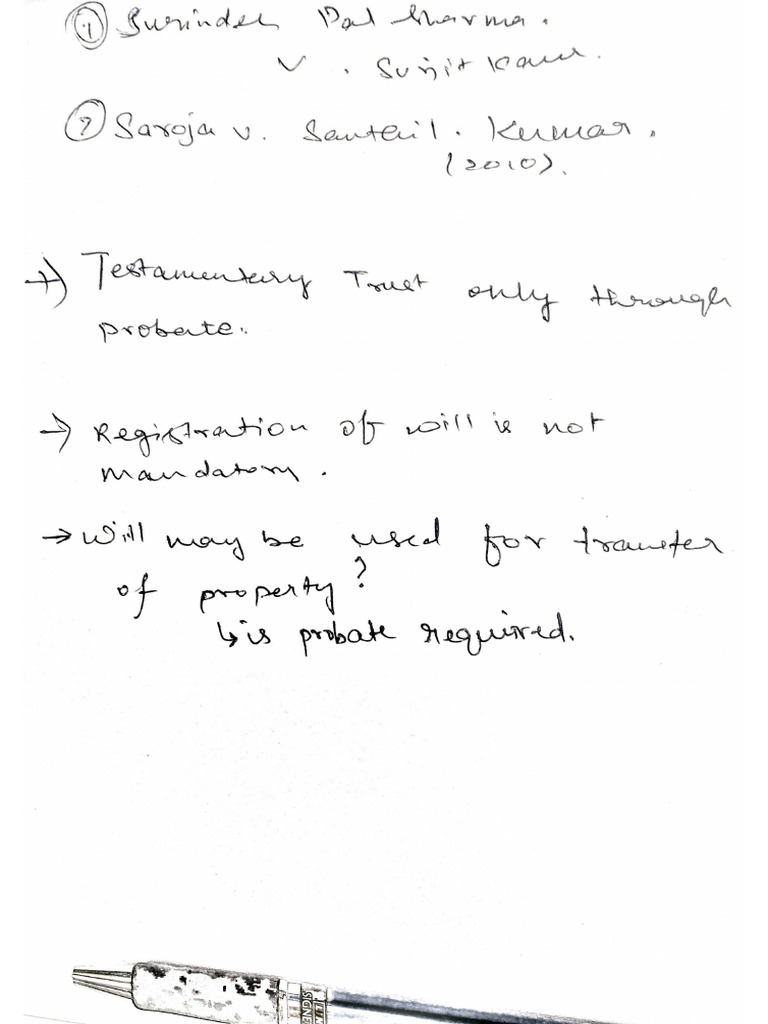 ① Surinder Pal Sharma.
v. Surjit Kaur.
② Saroja v. Santhil. Kumar.
(2010).
→ Testamentary Trust only through
probate.
→ Registration of will is not
mandatory.
→ Will may be used for transfer
of property?
↳ is probate required.